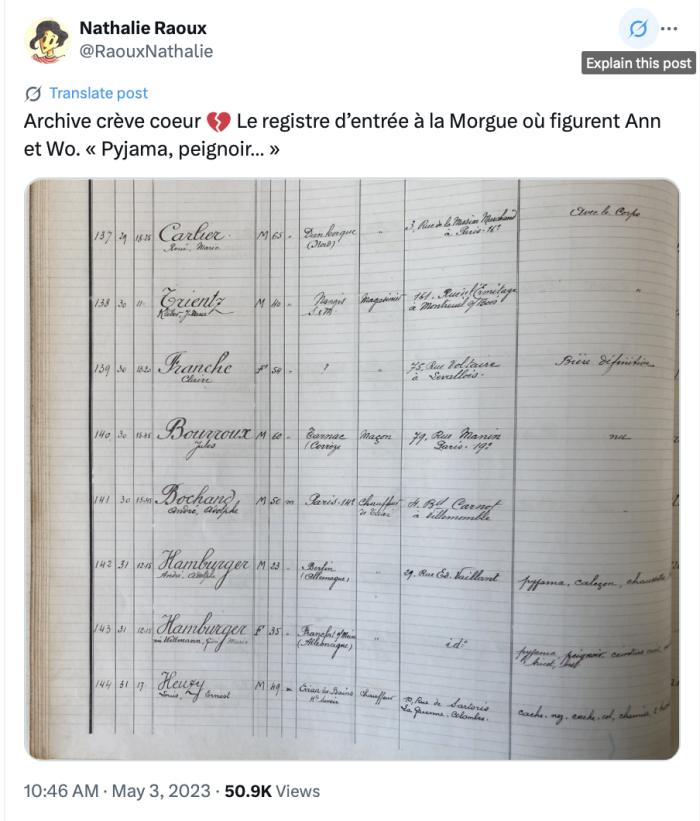 Nathalie Raoux
@RaouxNathalie
Explain this post
Translate post
Archive crève coeur 💔 Le registre d’entrée à la Morgue où figurent Ann
et Wo. « Pyjama, peignoir... »
Avec le Corps
137 29 Carlier M 65 Dunkerque 3, Rue de la
René, Marie (Nord) à Paris-16e
138 30 11 Trientz M 40 Nangis Magasinier 161, Rue de l'Ermitage
S & M à Montreuil s/ Bois
139 30 Franche F 54 ? 75, Rue Voltaire Bière définitive
Claire à Levallois
140 30 Bourroux M 60 Tarnac Maçon 79, Rue Manin nu
Jules (Corrèze Paris-19e
141 30 Bochand M 50 m Paris-14e Chauffeur 4, Bd Carnot
André, Adolphe à Villemomble
142 31 Hamburger M 23 Berlin 29, Rue Ed. Vaillant pyjama, caleçon,
André, Adolphe (Allemagne)
143 31 Hamburger F 35 Francfort s/ Mein id°
(Allemagne) pyjama, peignoir,
144 31 17 Heuzy M 49 Evian les Bains Chauffeur Rue de Sartoris
Louis, Ernest Hte Savoie La Garenne-Colombes. cache-nez, cache-col, chemise,
10:46 AM · May 3, 2023 · 50.9K Views